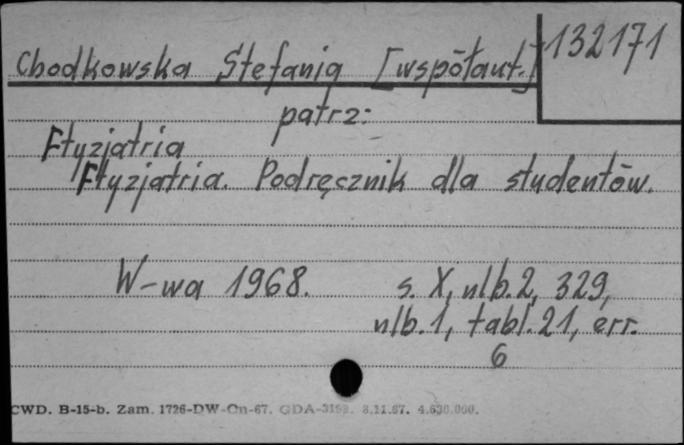 Chodkowska Stefania [współaut.] 132171
patrz:
Ftyzjatria
Ftyzjatria. Podręcznik dla studentów.
W-wa 1968. s. X, nlb. 2, 329,
nlb. 1, tabl. 21, err.
6
CWD. B-15-b. Zam. 1726-DW-Cn-67. GDA- 8.11.67. 4.630.000.